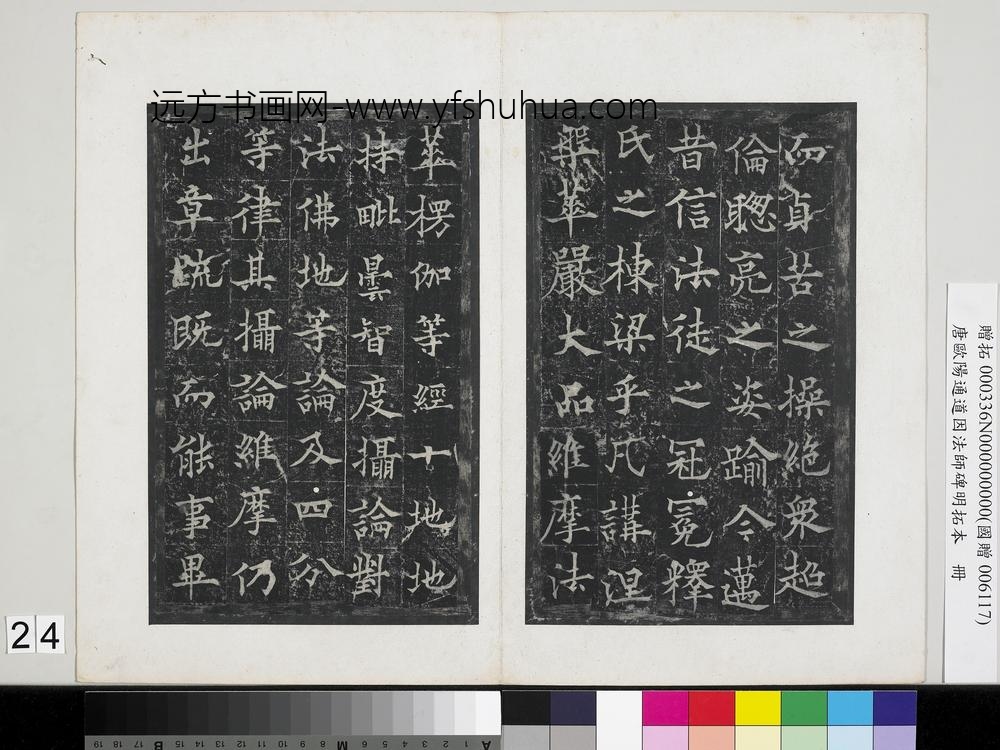 远方书画网-www.yfshuhua.com
而貞苦之操絶衆超
倫聦亮之姿踰今邁
昔信法徒之冠冕釋
氏之棟梁乎凡講涅
槃華嚴大品維摩法
華楞伽等經十地地
持毗曇智度攝論對
法佛地等論及四分
等律其攝論維摩仍
出章疏既而能事畢
贈拓 000336N000000000(國贈 006117)
唐歐陽通道因法師碑明拓本 冊
24
19 18 17 16 15 B 12 11 10 9 8 M 6 5 4 3 2 1 A